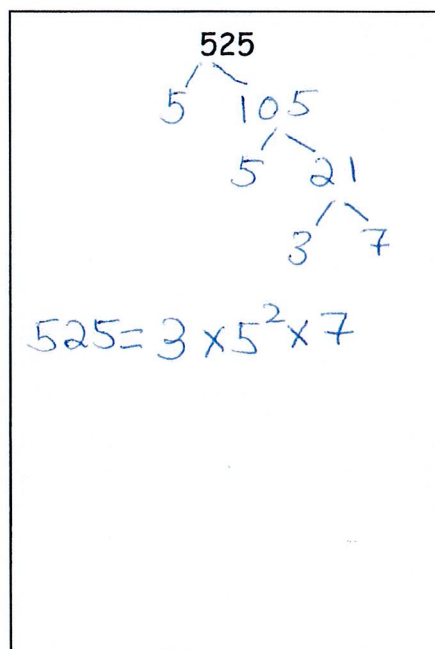 525
5 105
5 21
3 7
525 = 3 × 5² × 7